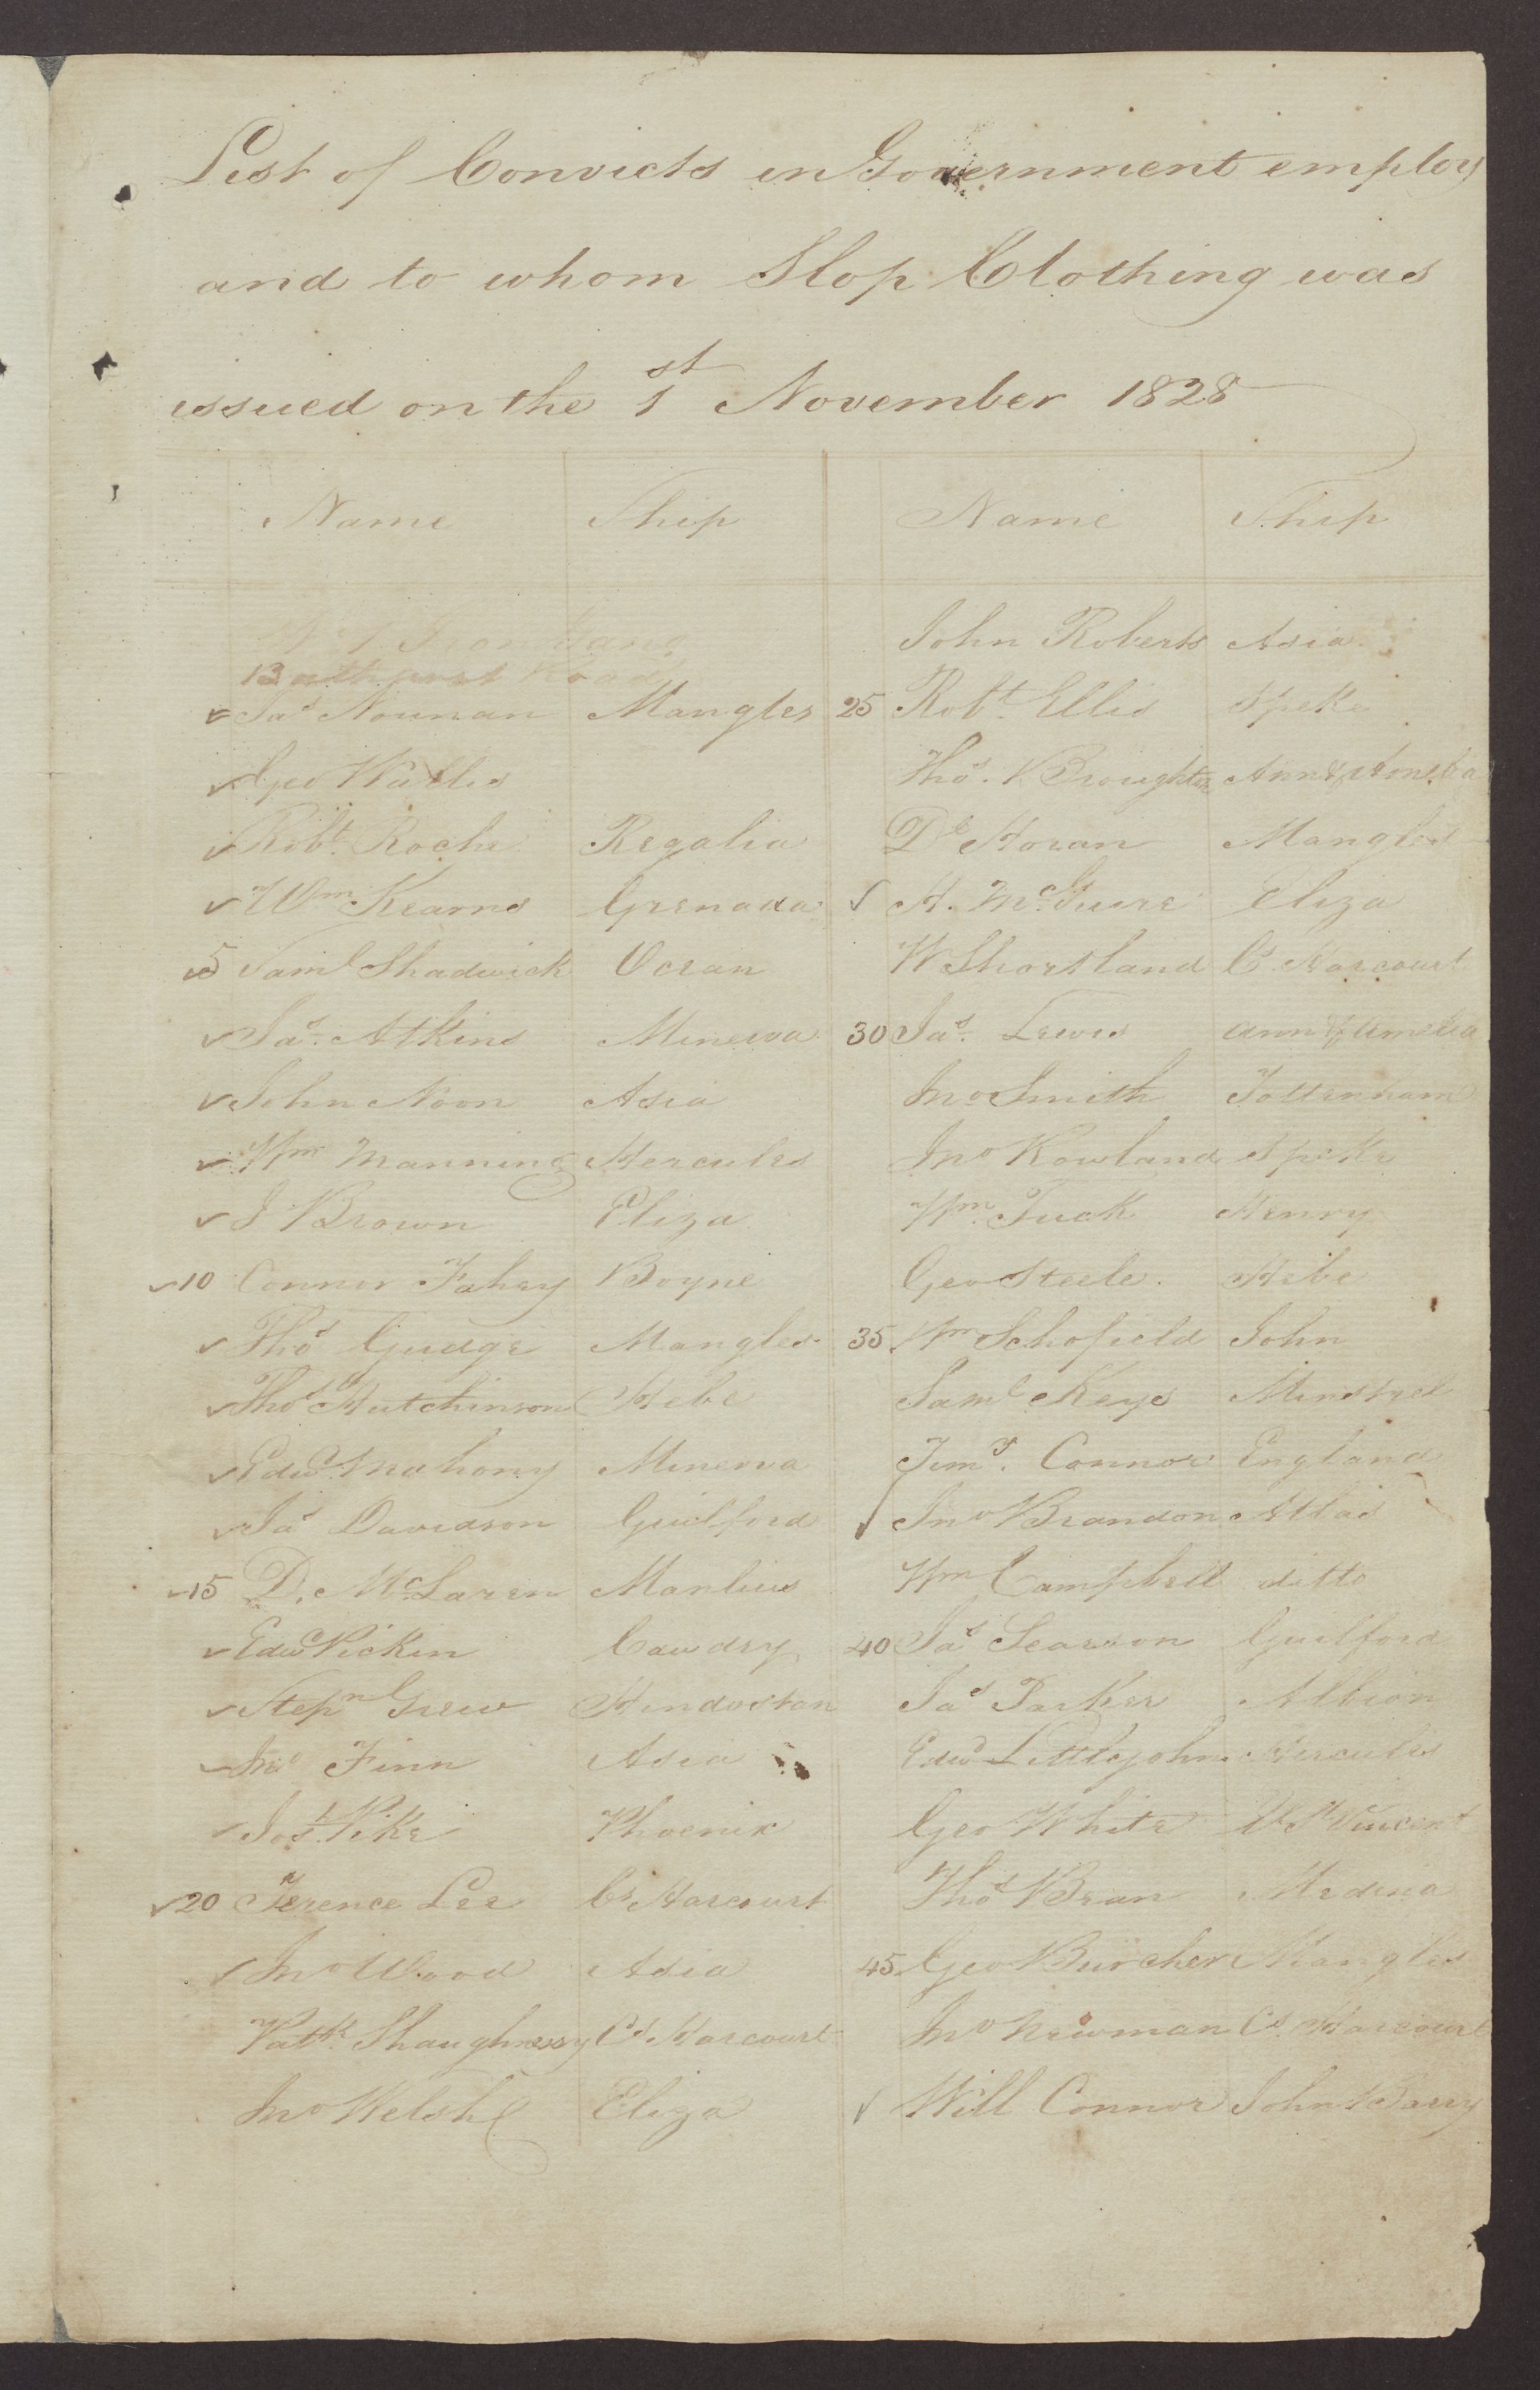 List of Convicts in Government employ
and to whom Slop Clothing was
issued on the 1st November 1828
Name Ship Name Ship
No 1 Iron Gang
Bathurst Road
Jas Nounan Mangles
Geo Wallis
Robt. Roche Regalia
Wm Kearns Grenada
5 Saml Shadwick Ocean
Jas. Atkins Minerva
John Noon Asia
Wm Manning Hercules
J Brown Eliza
10 Connor Fahey Boyne
Thos Gudge Mangles
Thos Hutchinson Hebe
Edwd Mahony Minerva
Jas Davidson Guilford
15 D. McLaren Manlius
Edwd Pickin Cawdry
Stepn Grew Hindostan
Jno Finn Asia
Jos. Pike Phoenix
20 Terence Lee Cs Harcourt
Jno Wood Asia
Patk. Shaughnessy Cs Harcourt
Jno Welsh Eliza
John Roberts Asia
25 Robt. Ellis Speke
Thos. Broughton Ann & Amelia
Dl Horan Mangles
H. McGuire Eliza
W Shortland Cs Harcourt
30 Jas. Lewis Ann & Amelia
Jno Smith Tottenham
Jno Rowland Speke
Wm. Tuck Henry
Geo Steele. Hebe
35 Wm Schofield John
Saml Keys Minstrel
Timy. Connor England
Jno Brandon Atlas
Wm Campbell ditto
40 Jas Searson Guilford
Jas Parker Albion
Edwd Littlejohn Hercules
Geo White St Vincent
Thos Bran Medina
45 Geo Burcher Mangles
Jno Newman Cs. Harcourt
Will Connor John Barry